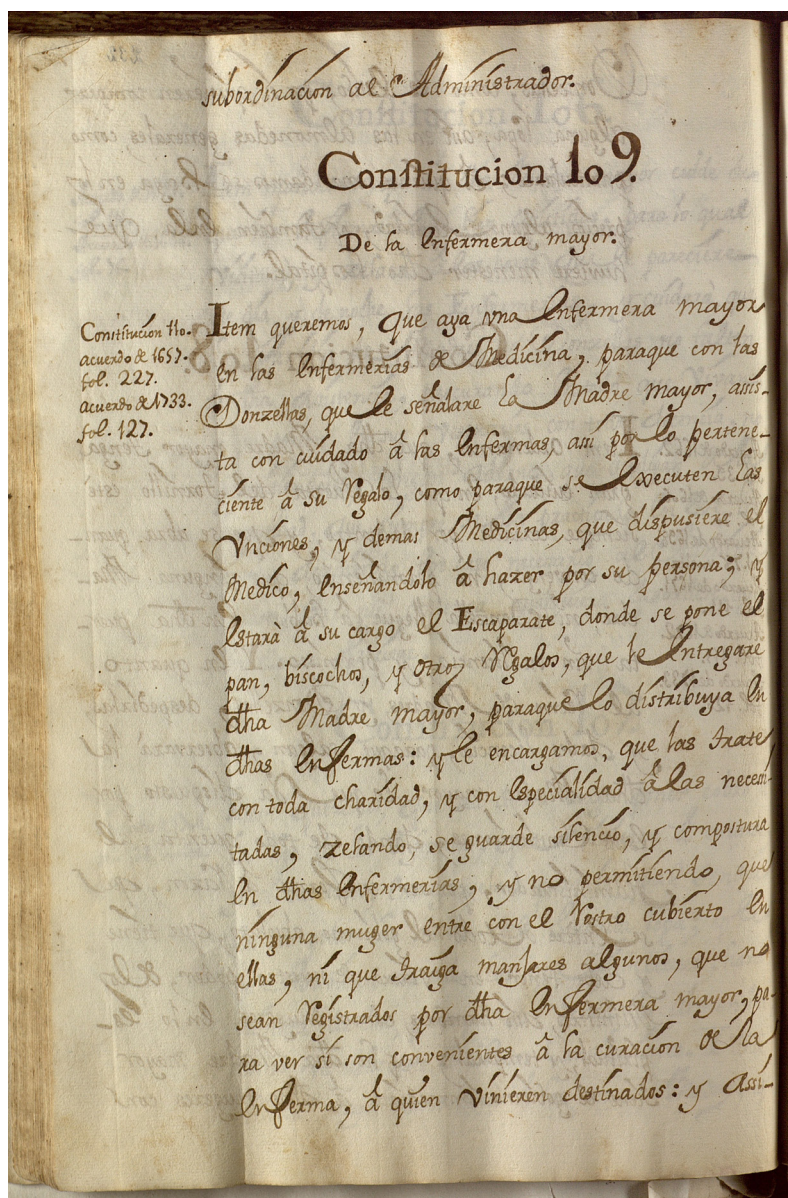 subordinacion al Administrador.
Constitucion 109.
De la Enfermera mayor.
Constitucion 110.
acuerdo de 1657.
fol. 227.
acuerdo de 1733.
fol. 127.
Item queremos, que aya vna Enfermera mayor
en las Enfermerias de Medicina, paraque con las
Donzellas, que le señalare la Madre mayor, assis-
ta con cuidado à las Enfermas, assi por lo pertene-
ciente à su regalo, como paraque se executen las
vnciones, y demas Medicinas, que dispusiere el
Medico, enseñandolo à hazer por su persona; y
estarà à su cargo el Escaparate, donde se pone el
pan, biscochos, y otros regalos, que le entregare
dha Madre mayor, paraque lo distribuya en
dhas Enfermas: y le encargamos, que las trate
con toda charidad, y con especialidad à las necessi-
tadas, zelando, se guarde silencio, y compostura
en dhas Enfermerias, y no permitiendo, que
ninguna muger entre con el rostro cubierto en
ellas, ni que traiga manjares algunos, que no
sean registrados por dha Enfermera mayor, pa-
ra ver si son convenientes à la curacion de la
Enferma, à quien vinieren destinados: y assi-